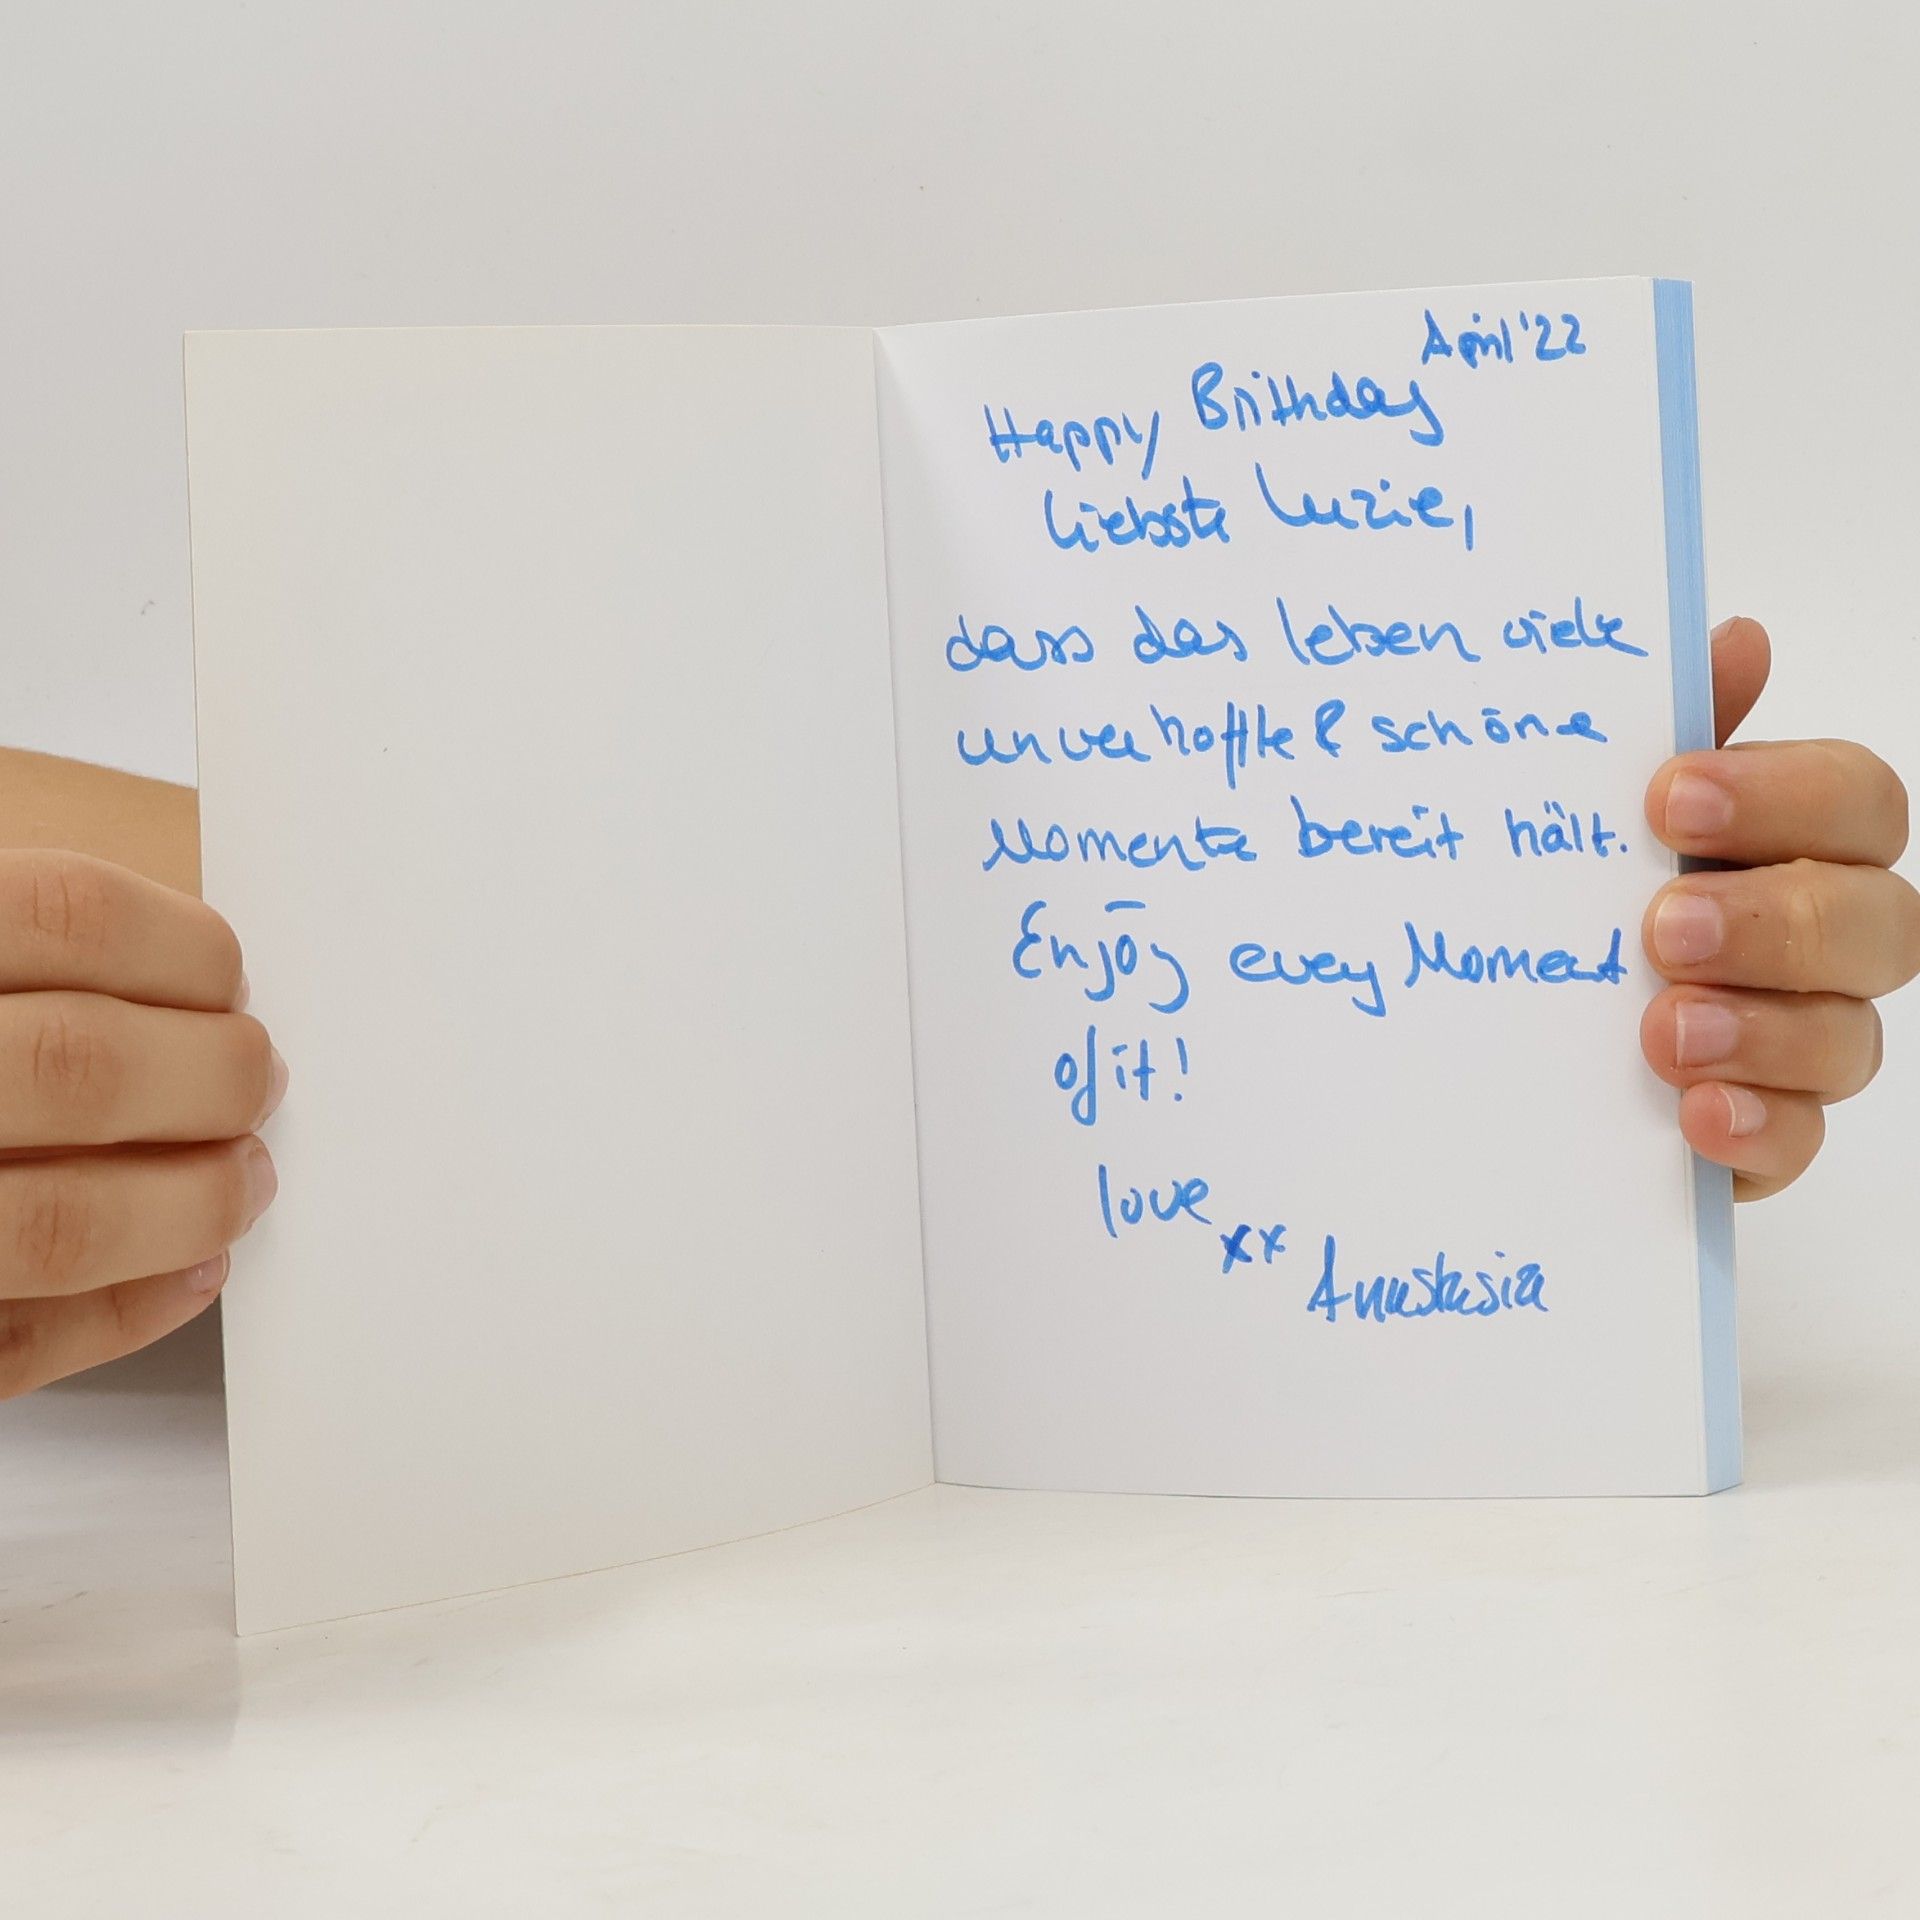 April '22
Happy Brithday
liebste Luzie,
dass das leben viele
unverhoffte & schöne
Momente bereit hält.
Enjoy evey Moment
of it!
love
xx Anastasia